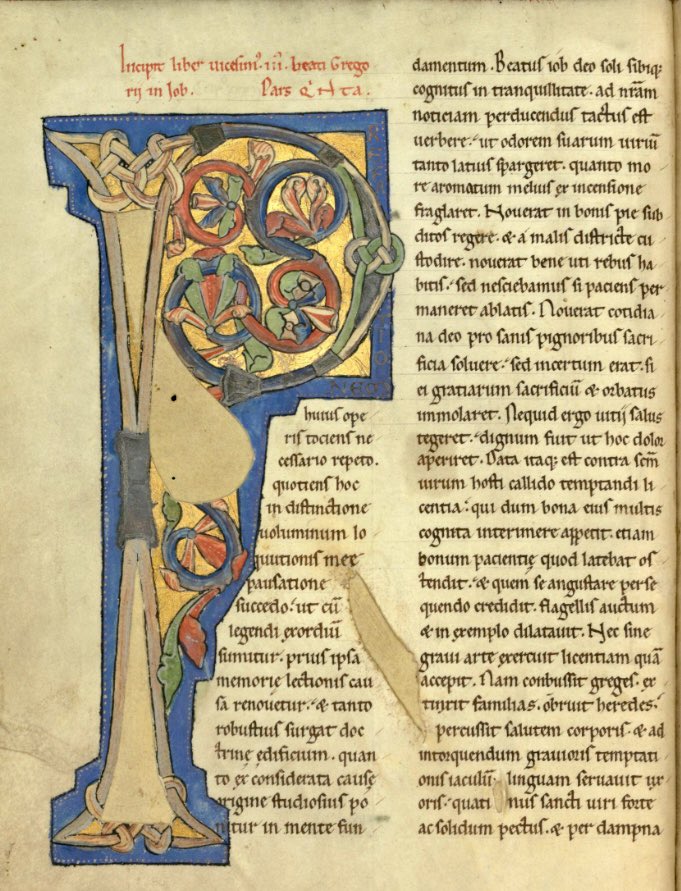 Incipit liber vicesimꝰ.iii. beati Grego
rii in Iob. Pars QNTA.
P
NEO
huius ope
ris tociens ne
cessario repeto.
quotiens hoc
in distinctione
voluminum lo
quutionis meę
pausatione
succedo. ut cū
legendi exordiū
sumitur. prius ipsa
memorię lectionis cau
sa renouetur. & tanto
robustius surgat doc
trinę edificium. quan
to ex considerata causę
origine studiosius po
nitur in mente fun
damentum. Beatus iob deo soli sibiq;
cognitus in tranquillitate. ad nr̄am
noticiam perducendus tactus est
uerbere. ut odorem suarum uiriū
tanto latius spargeret. quanto mo
re aromatum melius ex incensione
fraglaret. Nouerat in bonis pie sub
ditos regere. & a malis districte cu
stodire. nouerat bene uti rebus ha
bitis. sed nesciebamus si paciens per
maneret ablatis. Nouerat cotidia
na deo pro sanis pignoribus sacri
ficia soluere. sed incertum erat. si
ei gratiarum sacrificiū & orbatus
immolaret. Nequid ergo uitij salus
tegeret. dignum fuit ut hoc dolor
aperiret. Data itaq; est contra sc̄m
uirum hosti callido temptandi li
centia. qui dum bona eius multis
cognita interimere appetit. etiam
bonum pacientię quod latebat os
tendit. & quem se angustare perse
quendo credidit. flagellis auctum
& in exemplo dilatauit. Nec sine
graui arte exercuit licentiam quā
accepit. Nam conbussit greges. ex
tinxit familias. obruit heredes.
percussit salutem corporis. & ad
intorquendum grauioris temptati
onis iaculū. linguam seruauit ux
oris. quatinus sancti uiri forte
ac solidum pectus. & per dampna